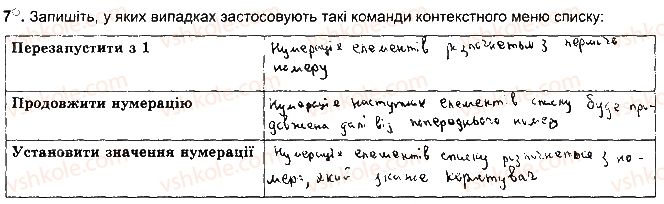 7. Запишіть, у яких випадках застосовують такі команди контекстного меню списку:
Перезапустити з 1
Нумерація елементів розпочнеться з першого
номеру
Продовжити нумерацію
Нумерація наступних елементів списку буде про-
довжена далі від попереднього номеру
Установити значення нумерації
Нумерація елементів списку розпочнеться з но-
меру, який вкаже користувач